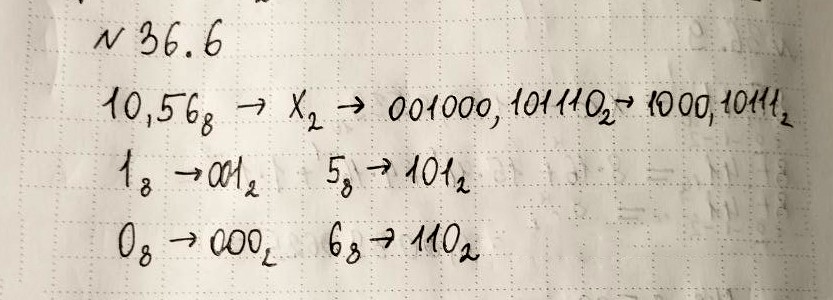 N 36.6
10,56₈ → X₂ → 001000,101110₂ → 1000,10111₂
1₈ → 001₂ 5₈ → 101₂
0₈ → 000₂ 6₈ → 110₂